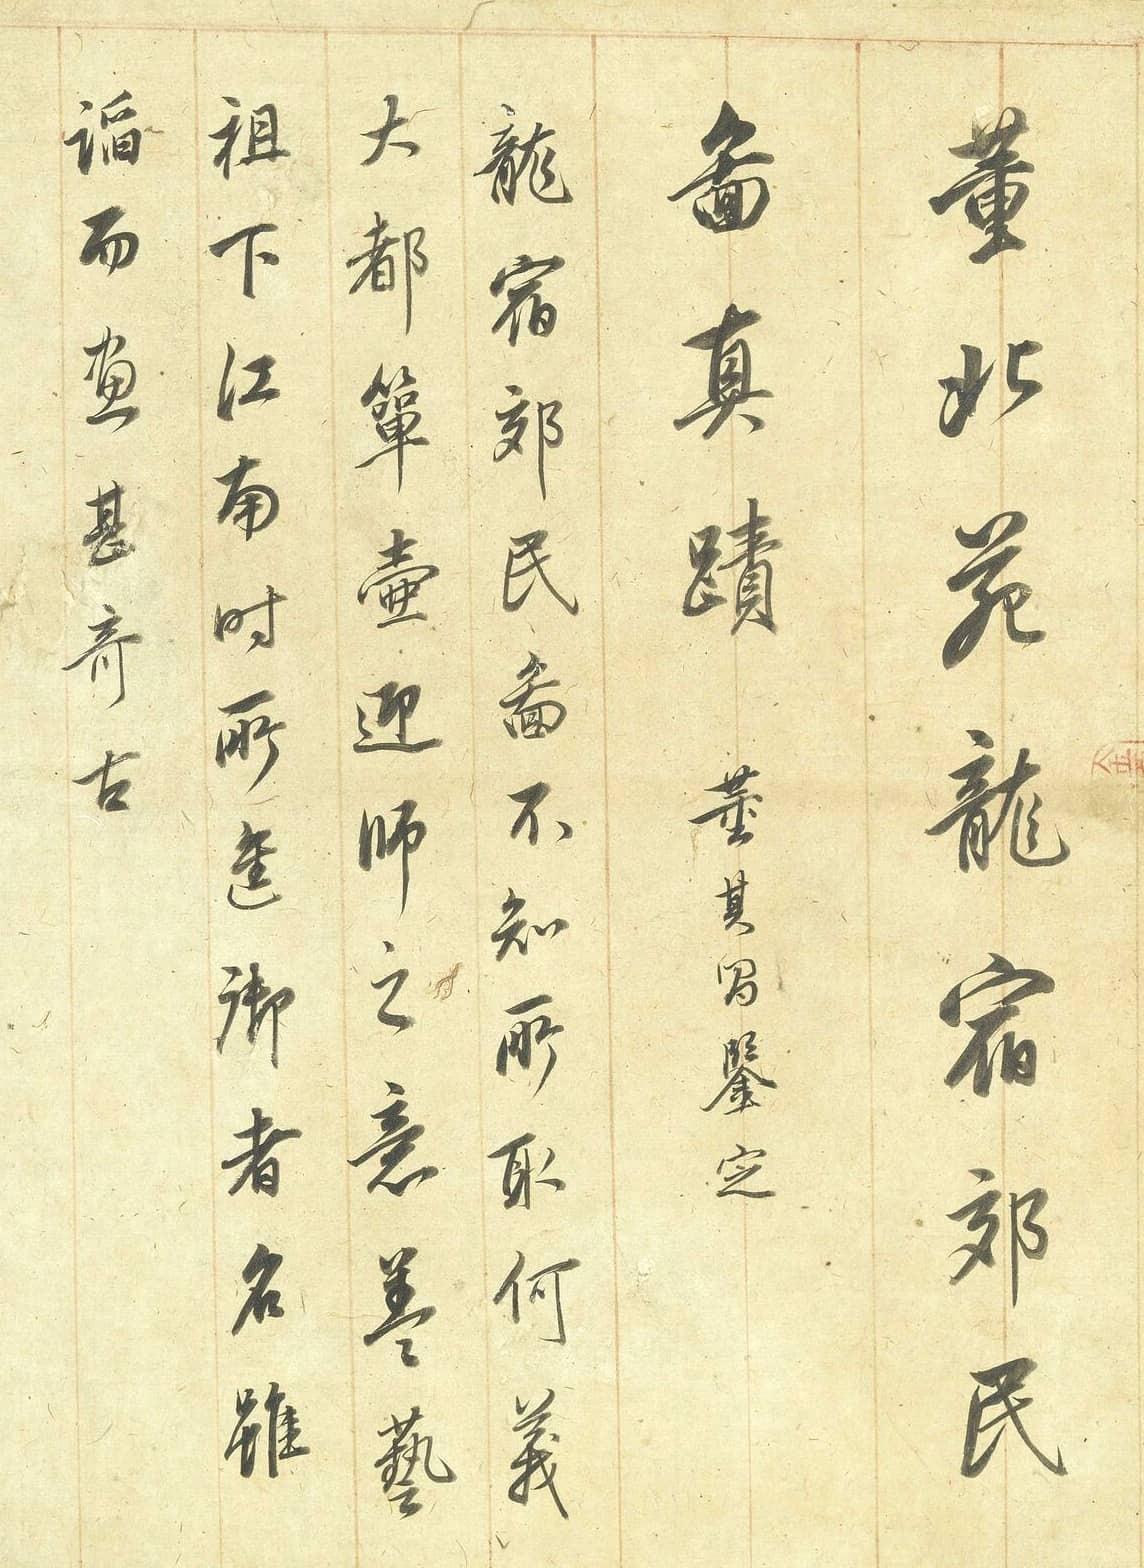 董北苑龍宿郊民
圖真蹟 董其昌鑒定
龍宿郊民圖不知所取何義
大都簞壺迎師之意葢藝
祖下江南時所進御者名雖
謟而畫甚奇古